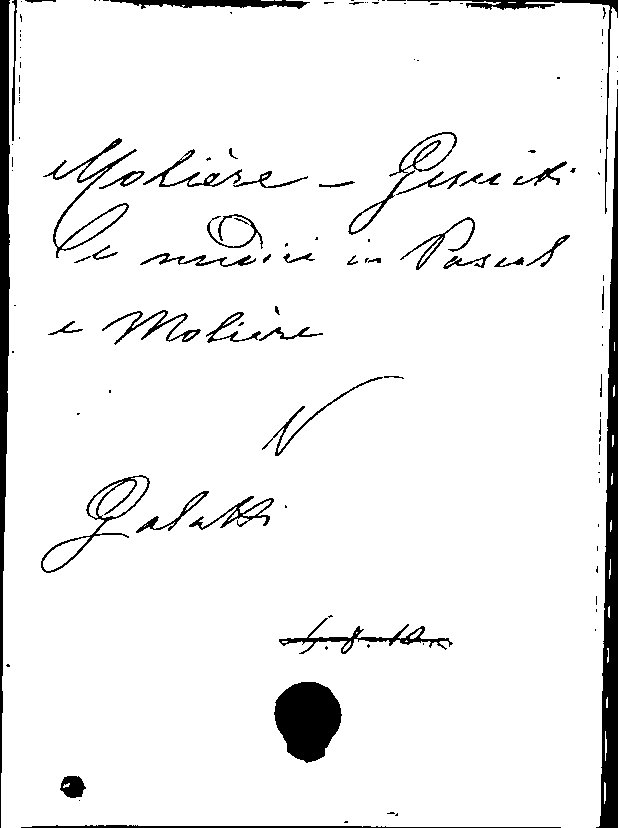 Molière - Gesuiti
e medici in Pascal
e Molière
V
Galatti